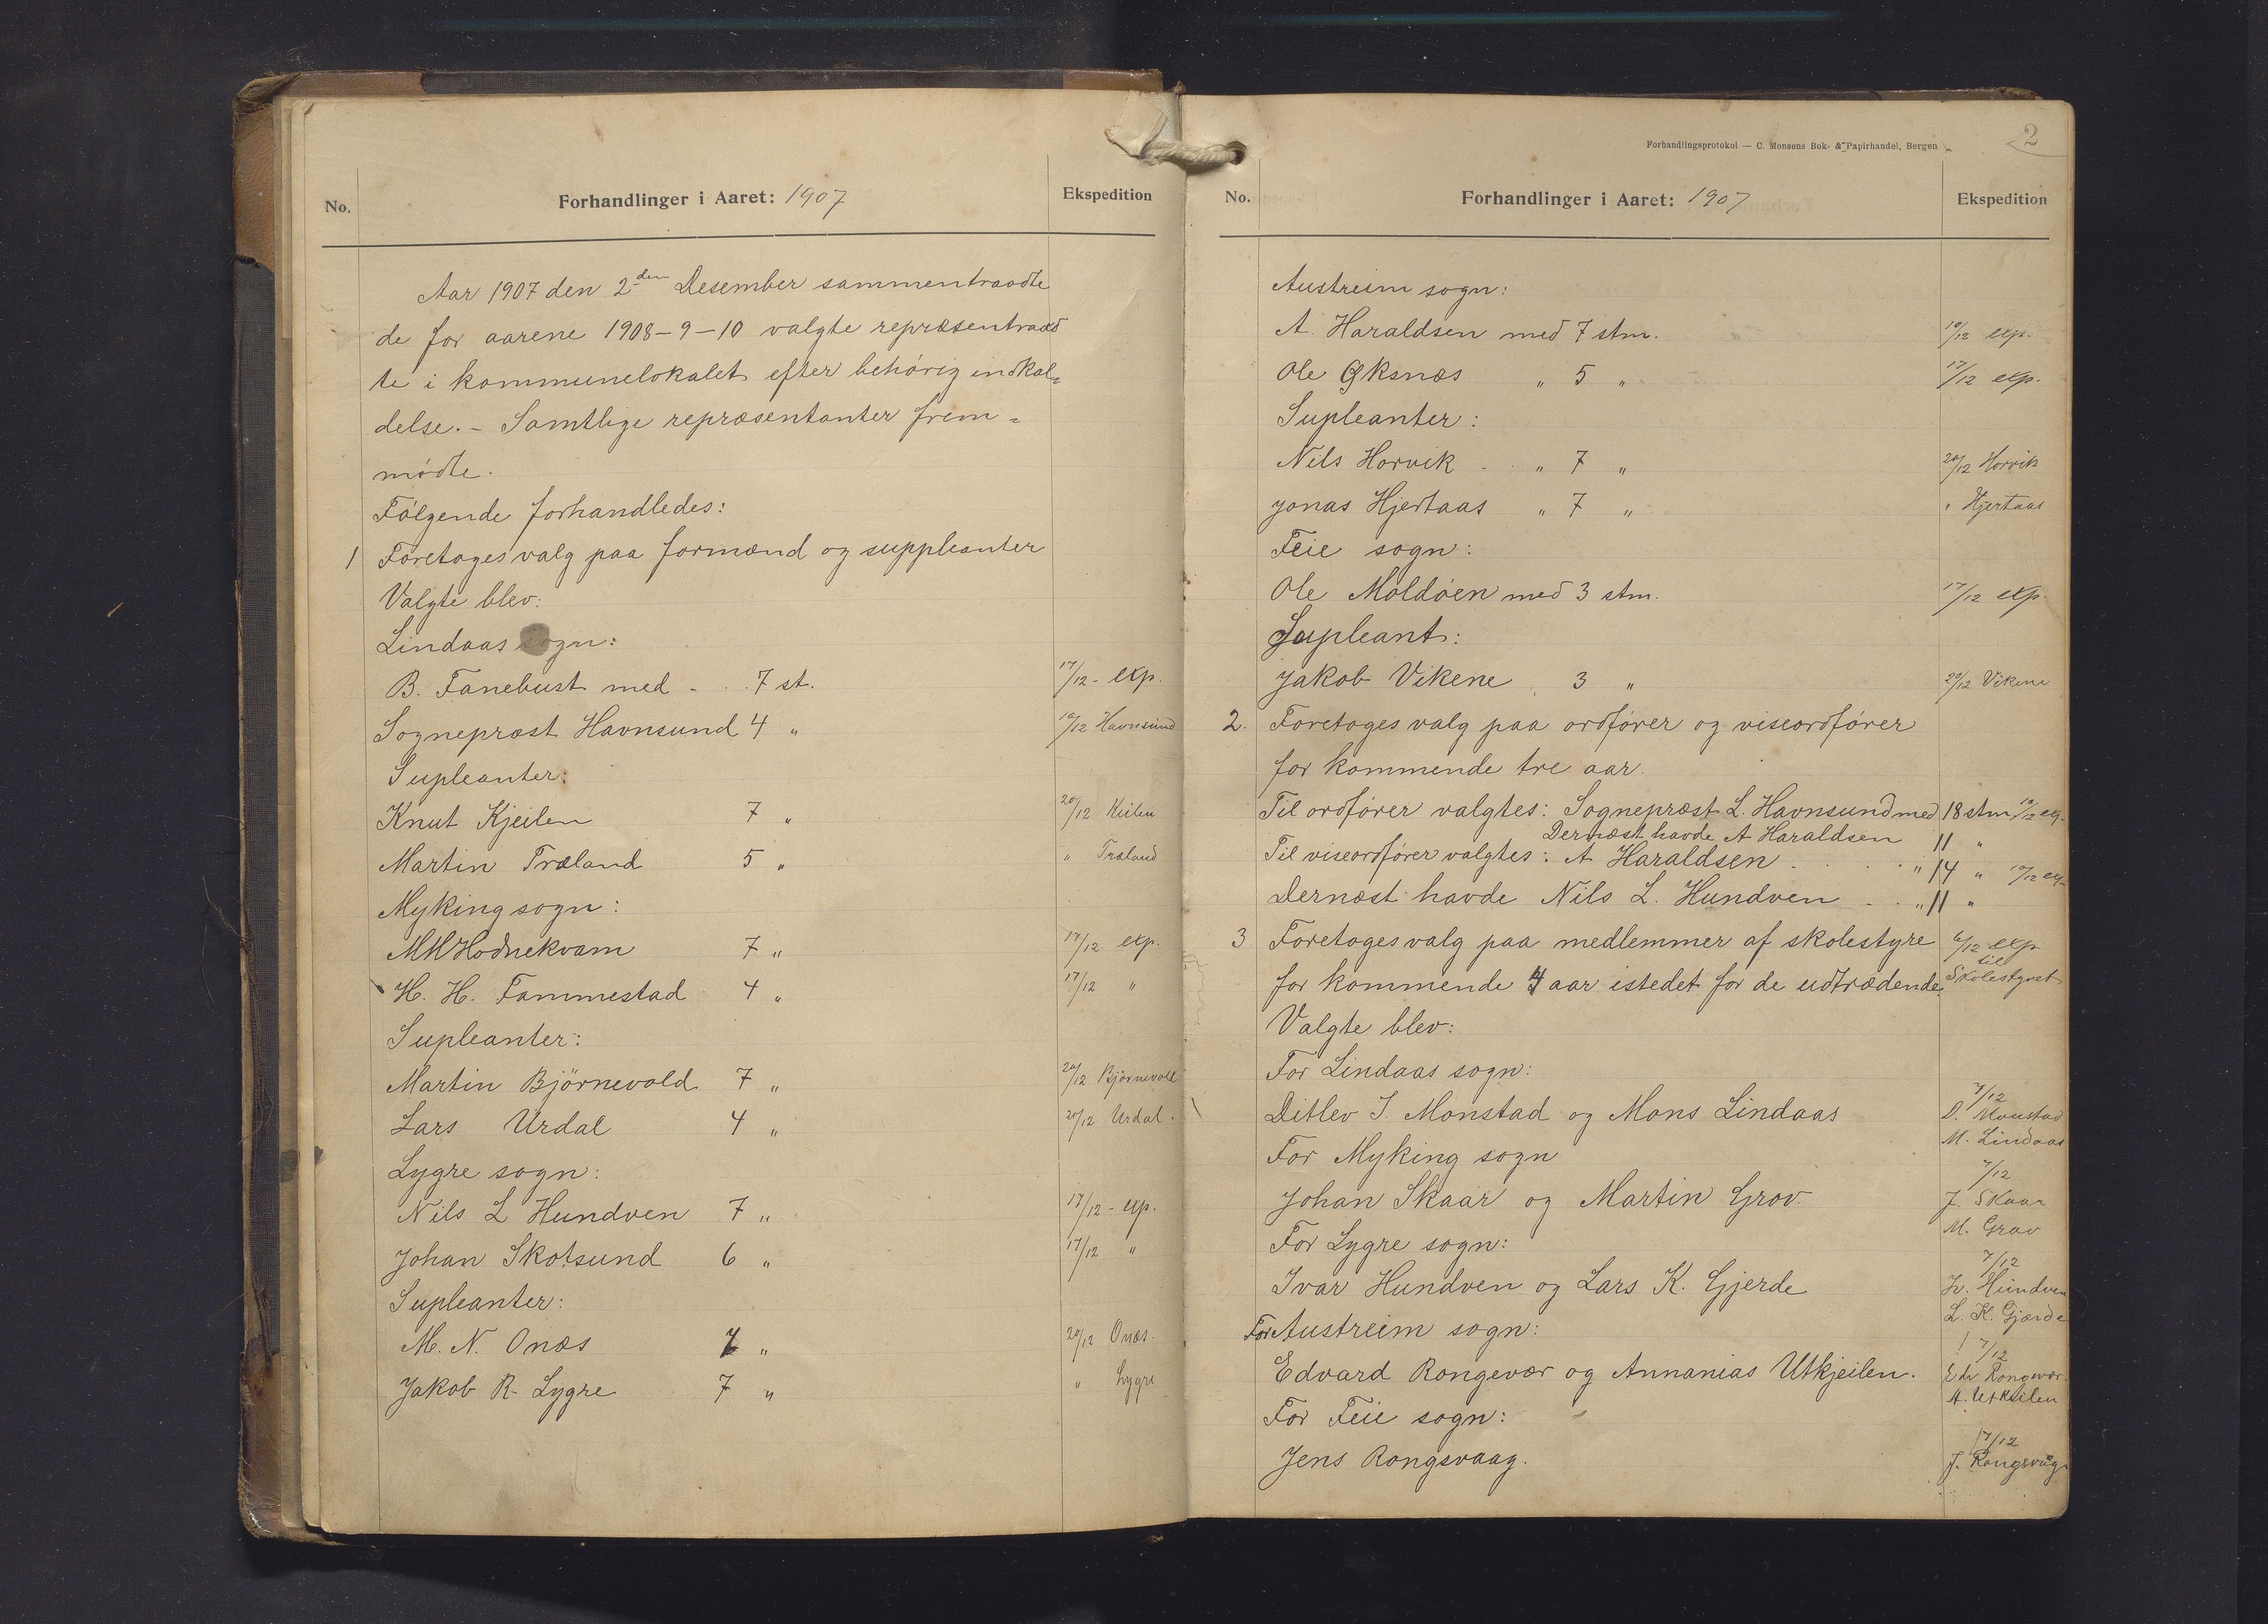 No. Forhandlinger i Aaret: 1907 Ekspedition
Aar 1907 den 2den Desember sammentraadte
de for aarene 1908-9-10 valgte repræsentraad
te i kommunelokalet efter behörig indkal=
delse. - Samtlige repræsentanter frem=
mödte.
Fölgende forhandledes:
1 Foretoges valg paa formænd og suppleanter
Valgte blev:
Lindaas sogn:
B. Fanebust med - . . 7 st. 17/12 - exp.
Sogneprest Havnsund 4 " 10/12 Havnsund
Supleanter:
Knut Kjeilen 7 " 20/12 Keilen
Martin Træland 5 " " Træland
Myking sogn:
M M Hodnekvam 7 " 17/12 exp.
H. H. Fammestad 4 " 17/12 "
Supleanter:
Martin Björnevold 7 " 20/12 Björnevoll
Lars Urdal 4 " 20/12 Urdal.
Lygre sogn:
Nils L Hundven 7 " 17/12 - exp.
Johan Skotsund 6 " 17/12 "
Supleanter:
M. N. Onæs 7 " 20/12 Onæs.
Jakob R. Lygre 7 " " Lygre
Forhandlingsprotokol — C. Monsens Bok- & Papirhandel, Bergen
2
No. Forhandlinger i Aaret: 1907 Ekspedition
Austreim sogn:
A. Haraldsen med 7 stm. 10/12 exp.
Ole Øksnæs " 5 " 17/12 exp.
Supleanter:
Nils Horvik - " 7 " 20/12 Horvik
Jonas Hjertaas " 7 " " Hjertaas
Feie sogn:
Ole Moldöen med 3 stm. 17/12 exp.
Supleant:
Jakob Vikene 3 " 20/12 Vikene
2. Foretoges valg paa ordförer og viseordförer
for kommende tre aar.
Til ordförer valgtes: Sogneprest L. Havnsund med 18 stm 10/12 ex.
Dernæst havde A Haraldsen 11 "
Til viseordförer valgtes: A Haraldsen . . . " 14 " 10/12 ex.
Dernæst havde Nils L. Hundven . . " 11 "
3 Foretoges valg paa medlemmer af skolestyre 6/12 exp
til
for kommende 4 aar istedet for de udtrædende. Skolestyret
Valgte blev:
For Lindaas sogn:
7/12
Ditlev J. Monstad og Mons Lindaas D. Monstad
M. Lindaas
For Myking sogn
7/12
Johan Skaar og Martin Grov. J. Skaar
M. Grov
For Lygre sogn:
7/12
Ivar Hundven og Lars K. Gjerde Iv. Hundven
L. K. Gjærde
For Austreim sogn:
7/12
Edvard Rongevær og Annanias Utkjeilen. Edv Rongevær.
A. Utkeilen
For Feie sogn:
7/12
Jens Rongsvaag. J. Rongsvåg